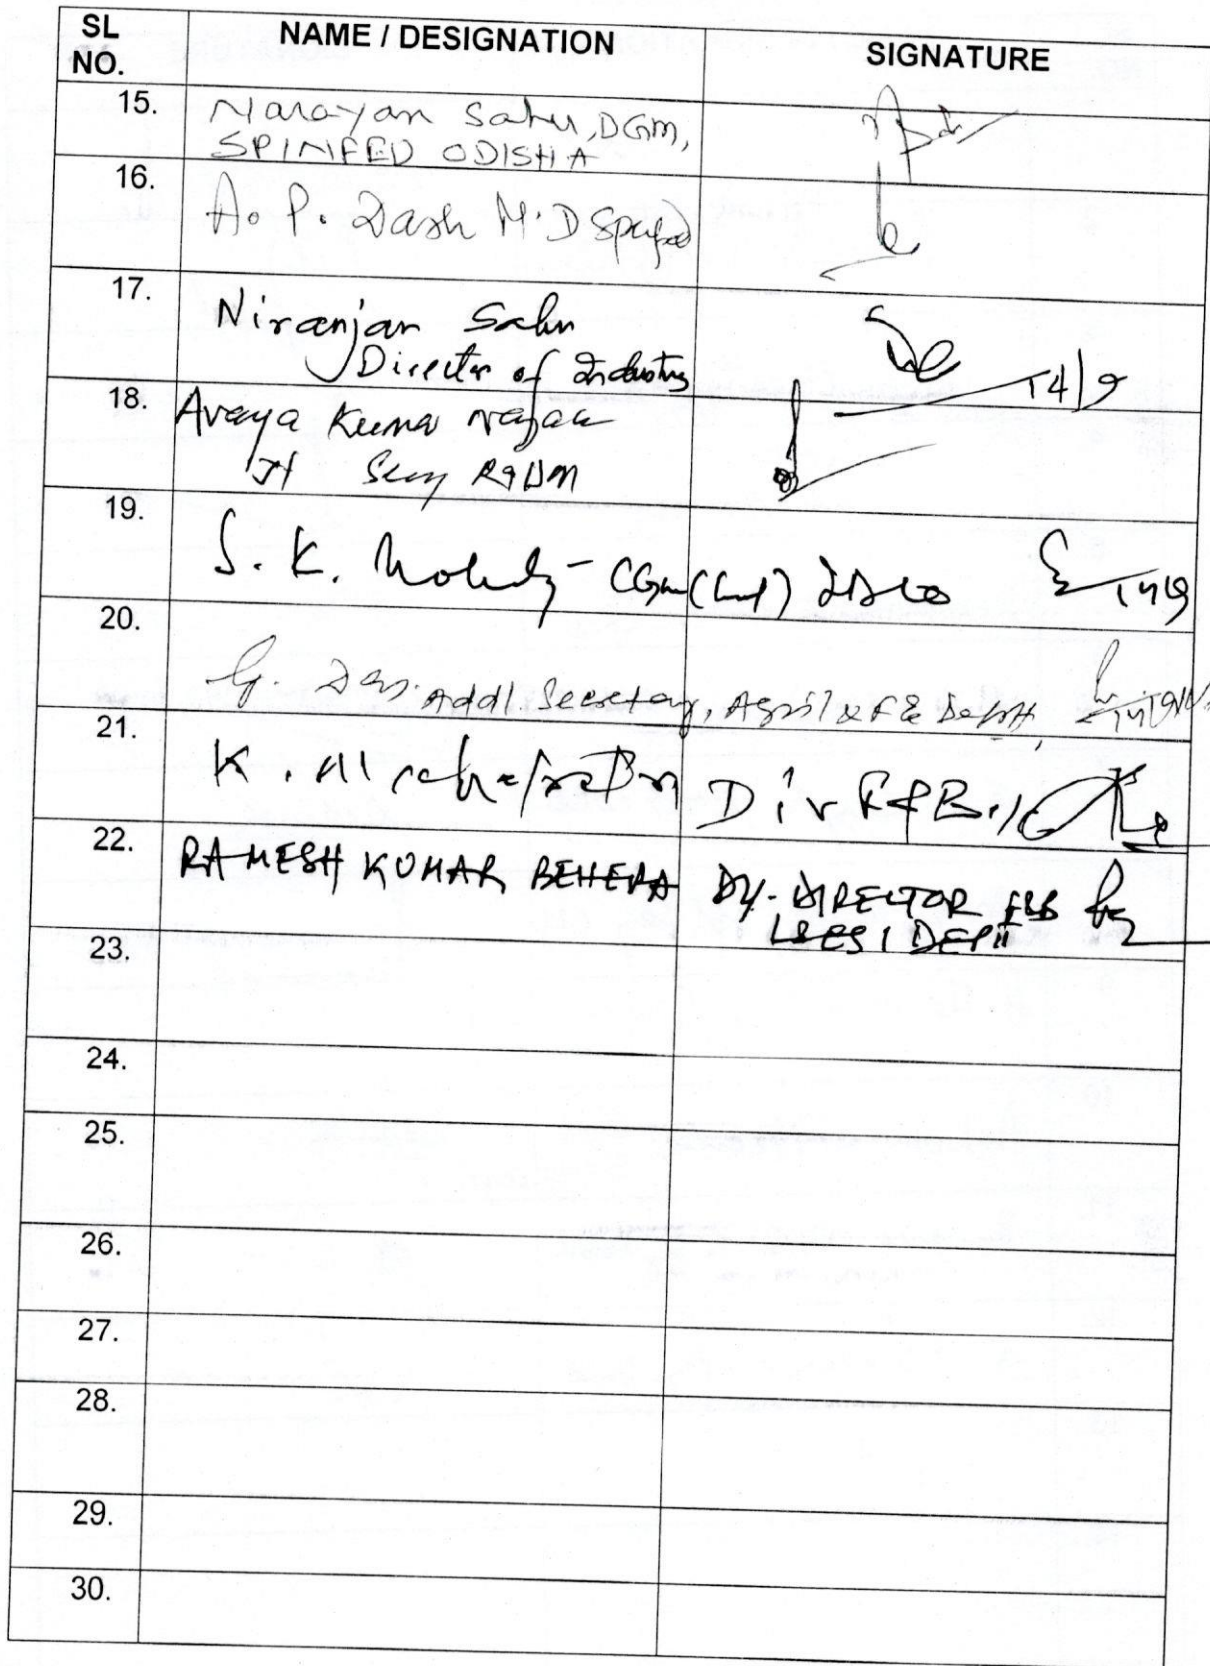 SL NO.
NAME / DESIGNATION
SIGNATURE
15.
Narayan Sahu, DGM,
SPINFED ODISHA
16.
A. P. Dash M.D Spinfed
17.
Niranjan Sahu
Director of Industry
14/9
18.
Avaya Kumar Nayak
Jt Secy R&DM
19.
S. K. Mohanty - CGM
20.
G. Das. Addl. Secretary, Agril & FE Deptt,
21.
K. Div F&B
22.
RAMESH KUMAR BEHERA DY. DIRECTOR F&B
L&ESI DEPTT
23.
24.
25.
26.
27.
28.
29.
30.